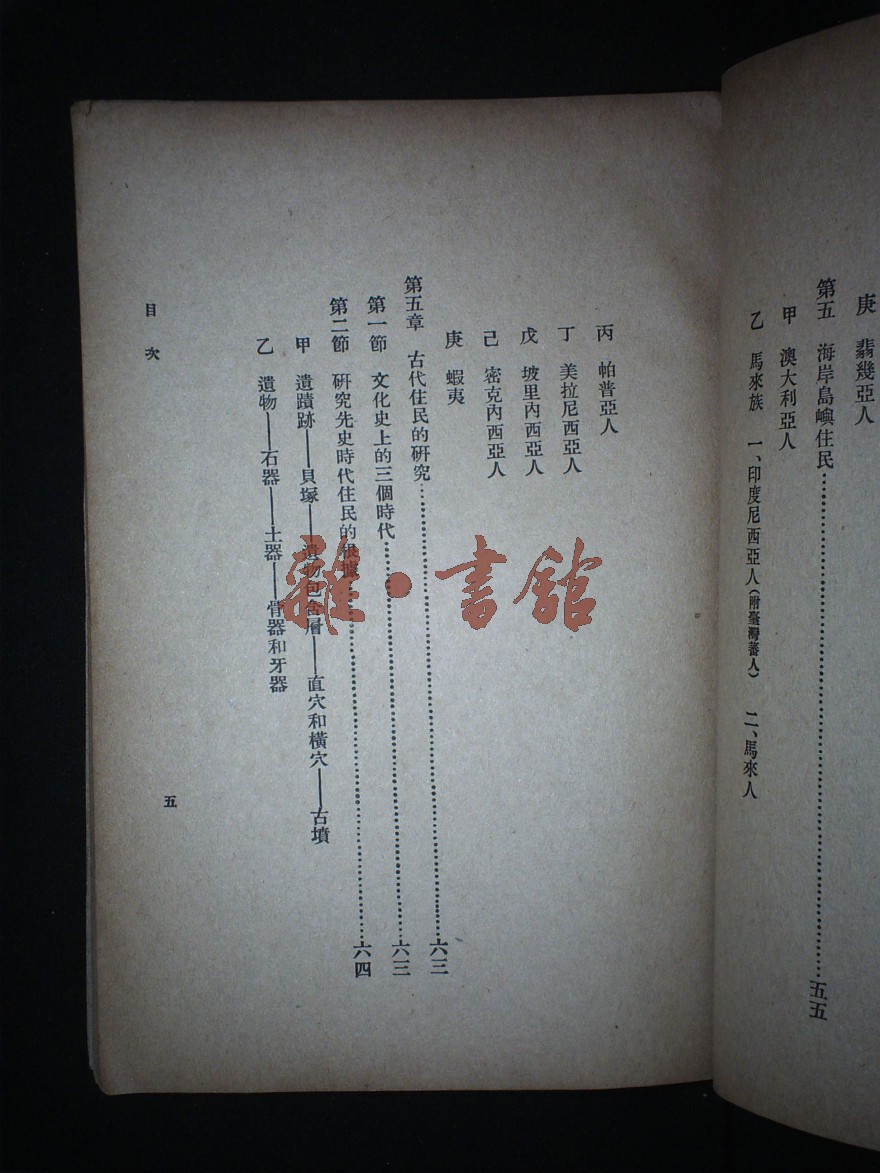 庚　翡幾亞人
第五　海岸島嶼住民……五五
甲　澳大利亞人
乙　馬來族　一、印度尼西亞人（附臺灣蕃人）　二、馬來人
丙　帕普亞人
丁　美拉尼西亞人
戊　坡里內西亞人
己　密克內西亞人
庚　蝦夷
第五章　古代住民的研究……六三
第一節　文化史上的三個時代……六三
第二節　研究先史時代住民的根據……六四
甲　遺蹟跡——貝塚——遺物包含層——直穴和橫穴——古墳
乙　遺物——石器——土器——骨器和牙器
目次
五
雜·書館